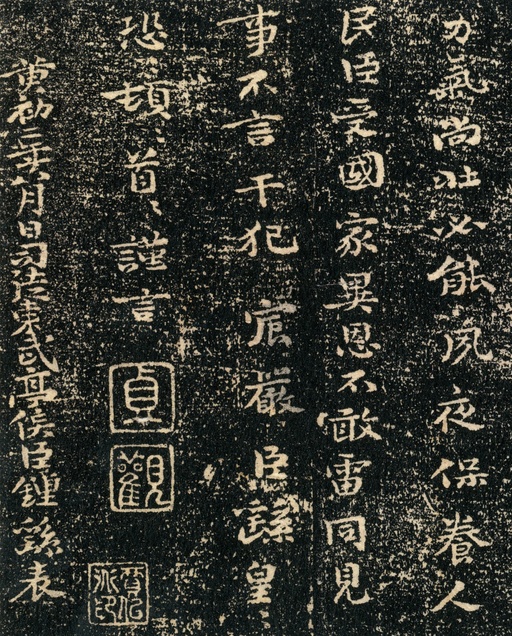 力氣尚壯必能夙夜保養人
民臣受國家異恩不敢雷同見
事不言干犯宸嚴臣繇皇〻
恐〻頓〻首〻謹言
貞觀
黃初二年八月日司徒東武亭侯臣鍾繇表